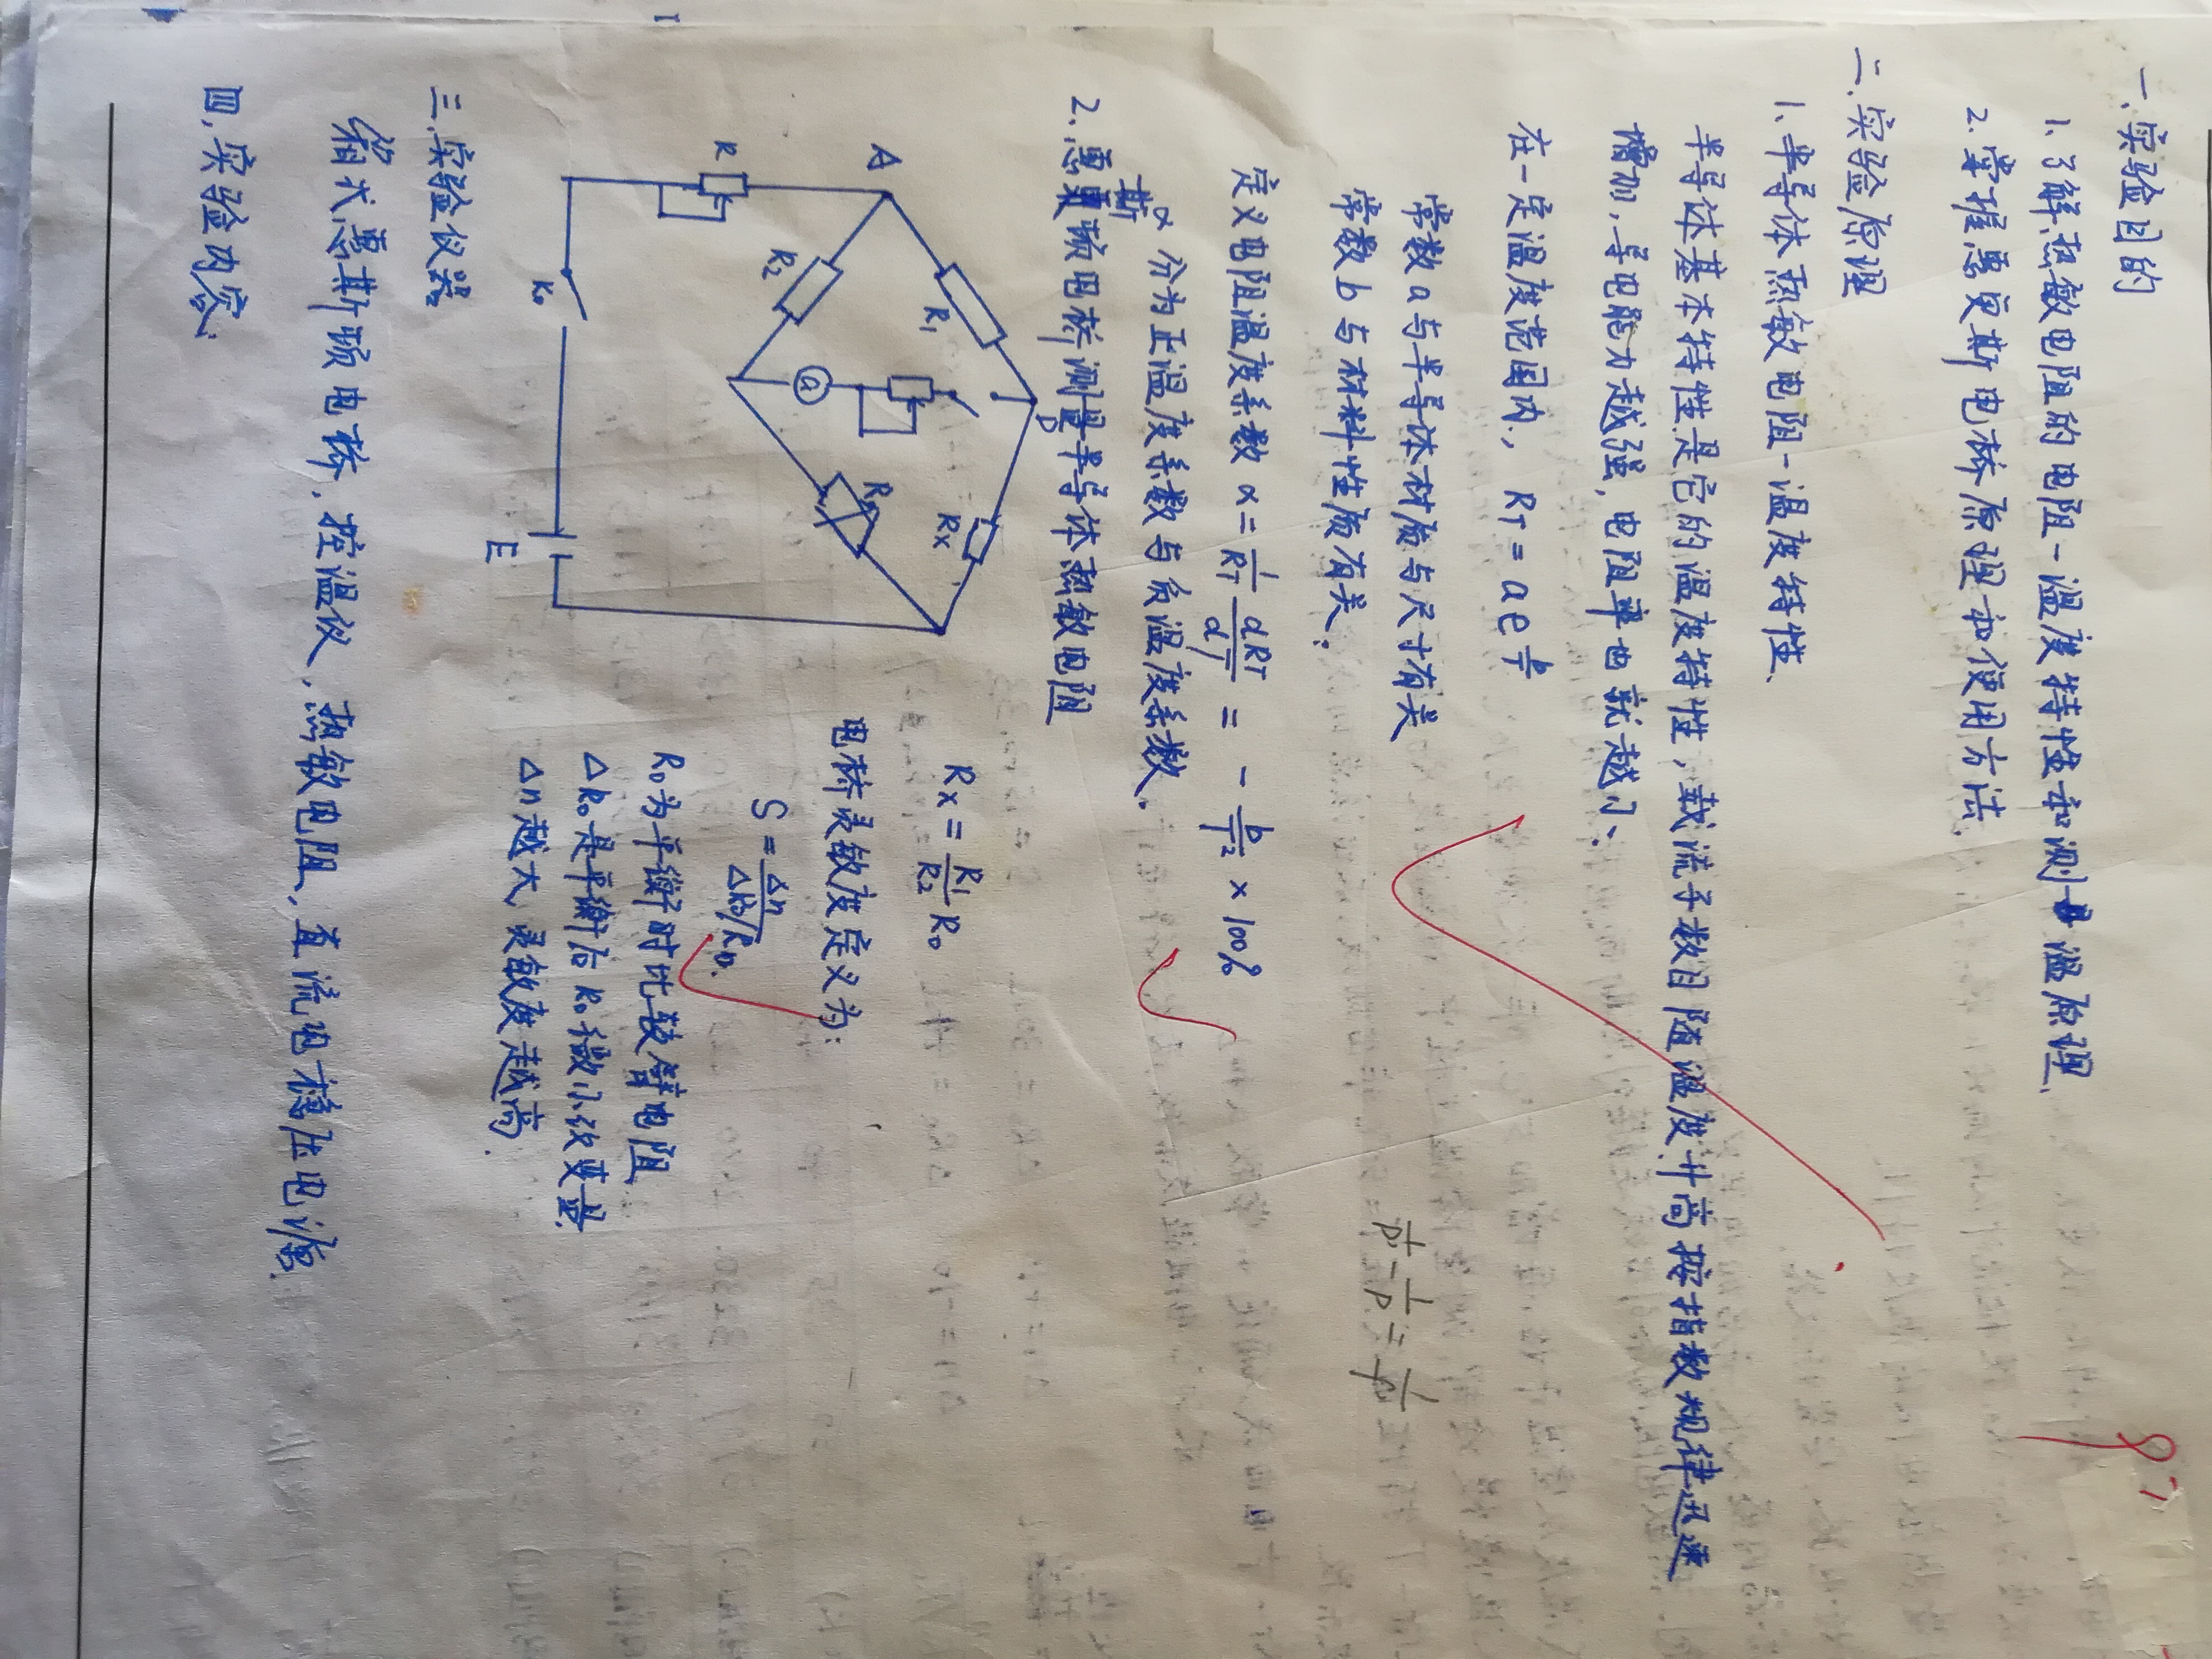 一、实验目的
1、了解热敏电阻的电阻-温度特性和测温原理.
2、掌握惠更斯电桥原理和使用方法.
二、实验原理
1、半导体热敏电阻-温度特性、
半导体基本特性是它的温度特性,载流子数目随温度升高按指数规律迅速
增加,导电能力越强,电阻率也就越小、
在一定温度范围内, RT = a e^{b/T}
常数a与半导体材质与尺寸有关
1/p' - 1/p = 1/f'
常数b与材料性质有关。
定义电阻温度系数 α = 1/RT dRT/dT = - b/T² × 100%
α 分为正温度系数与负温度系数。
2、惠斯顿电桥测量半导体热敏电阻
D
R1
Rx
Rx = R1/R2 R0
A
R2
G
电桥灵敏度定义为:
S = Δn / ΔR0/R0.
R
R0为平衡时比较臂电阻
ΔR0是平衡后R0微小改变量,
K0
Δn越大,灵敏度越高.
E
三、实验仪器
箱式惠斯顿电桥,控温仪,热敏电阻,直流电稳压电源.
四、实验内容: